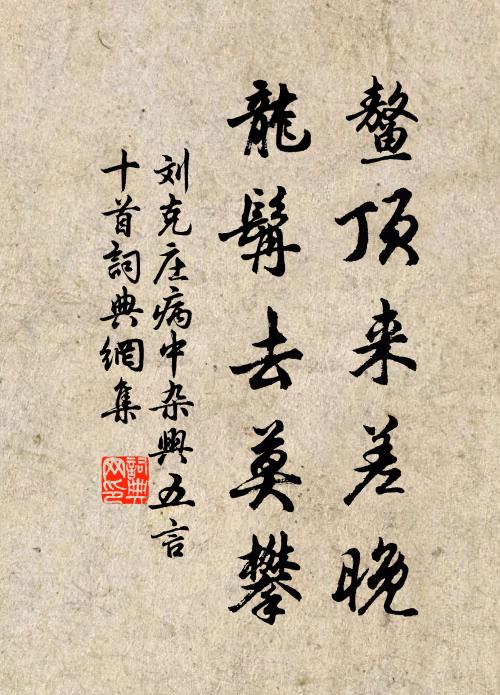 鳌顶来差晚
龍髯去莫攀
刘克庄病中杂興五言
十首詞典網集
詞典
网印